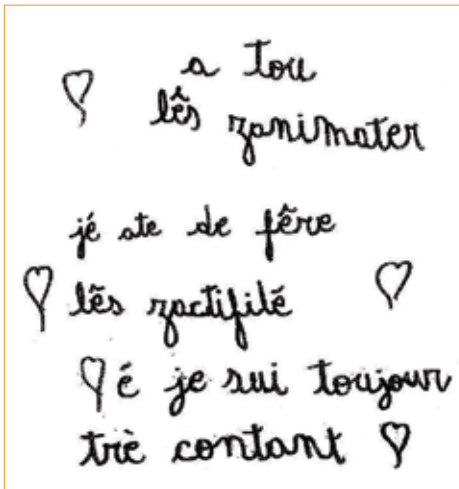 a tou
lês zanimater
jé ate de fêre
lês zactifité
é je sui toujour
trè contant